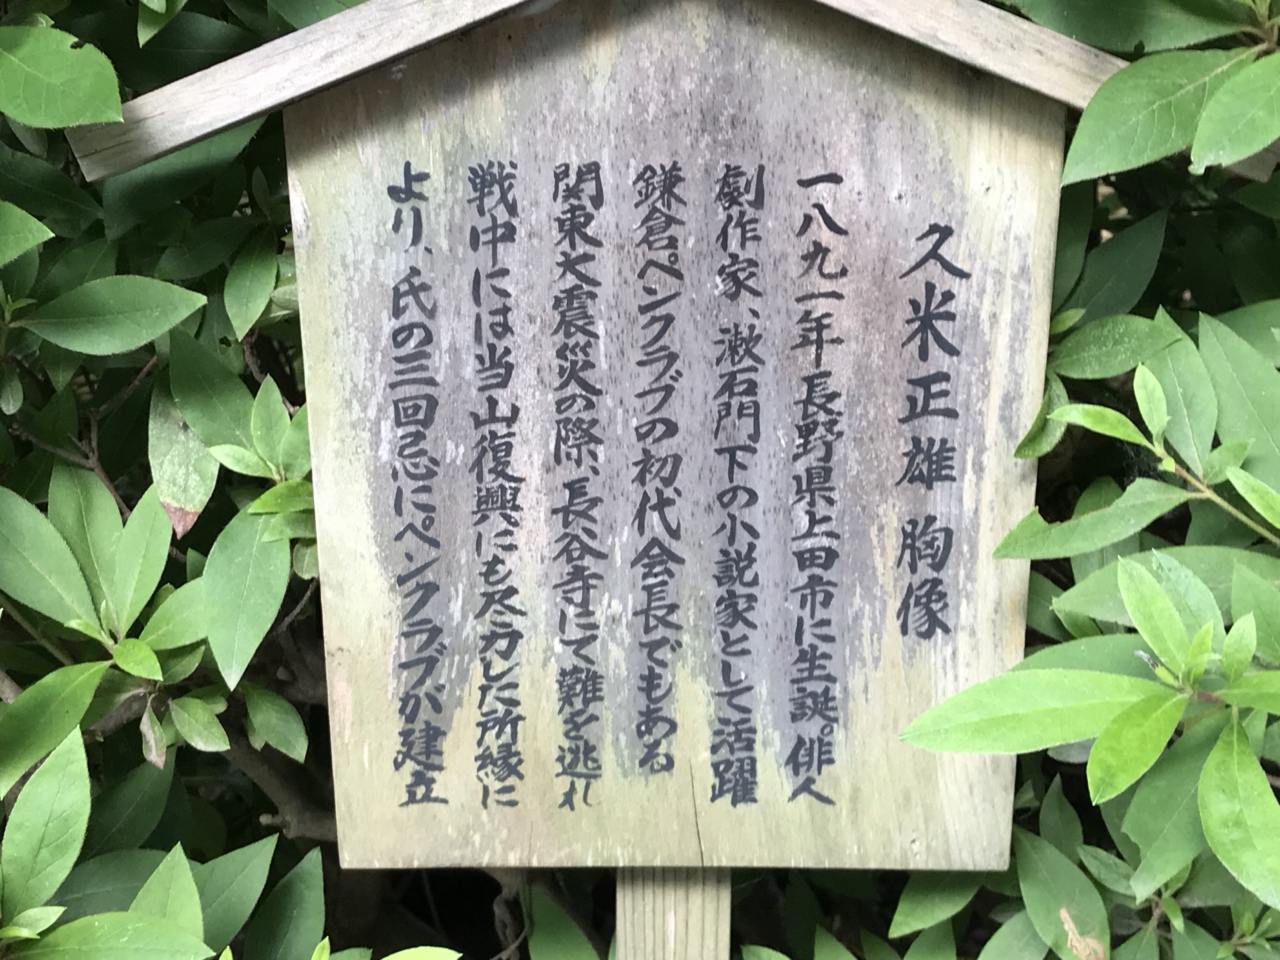 久米正雄 胸像
一八九一年長野県上田市に生誕。俳人
劇作家、漱石門下の小説家として活躍
鎌倉ペンクラブの初代会長でもある
関東大震災の際、長谷寺にて難を逃れ
戦中には当山復興にも尽力した所縁に
より、氏の三回忌にペンクラブが建立